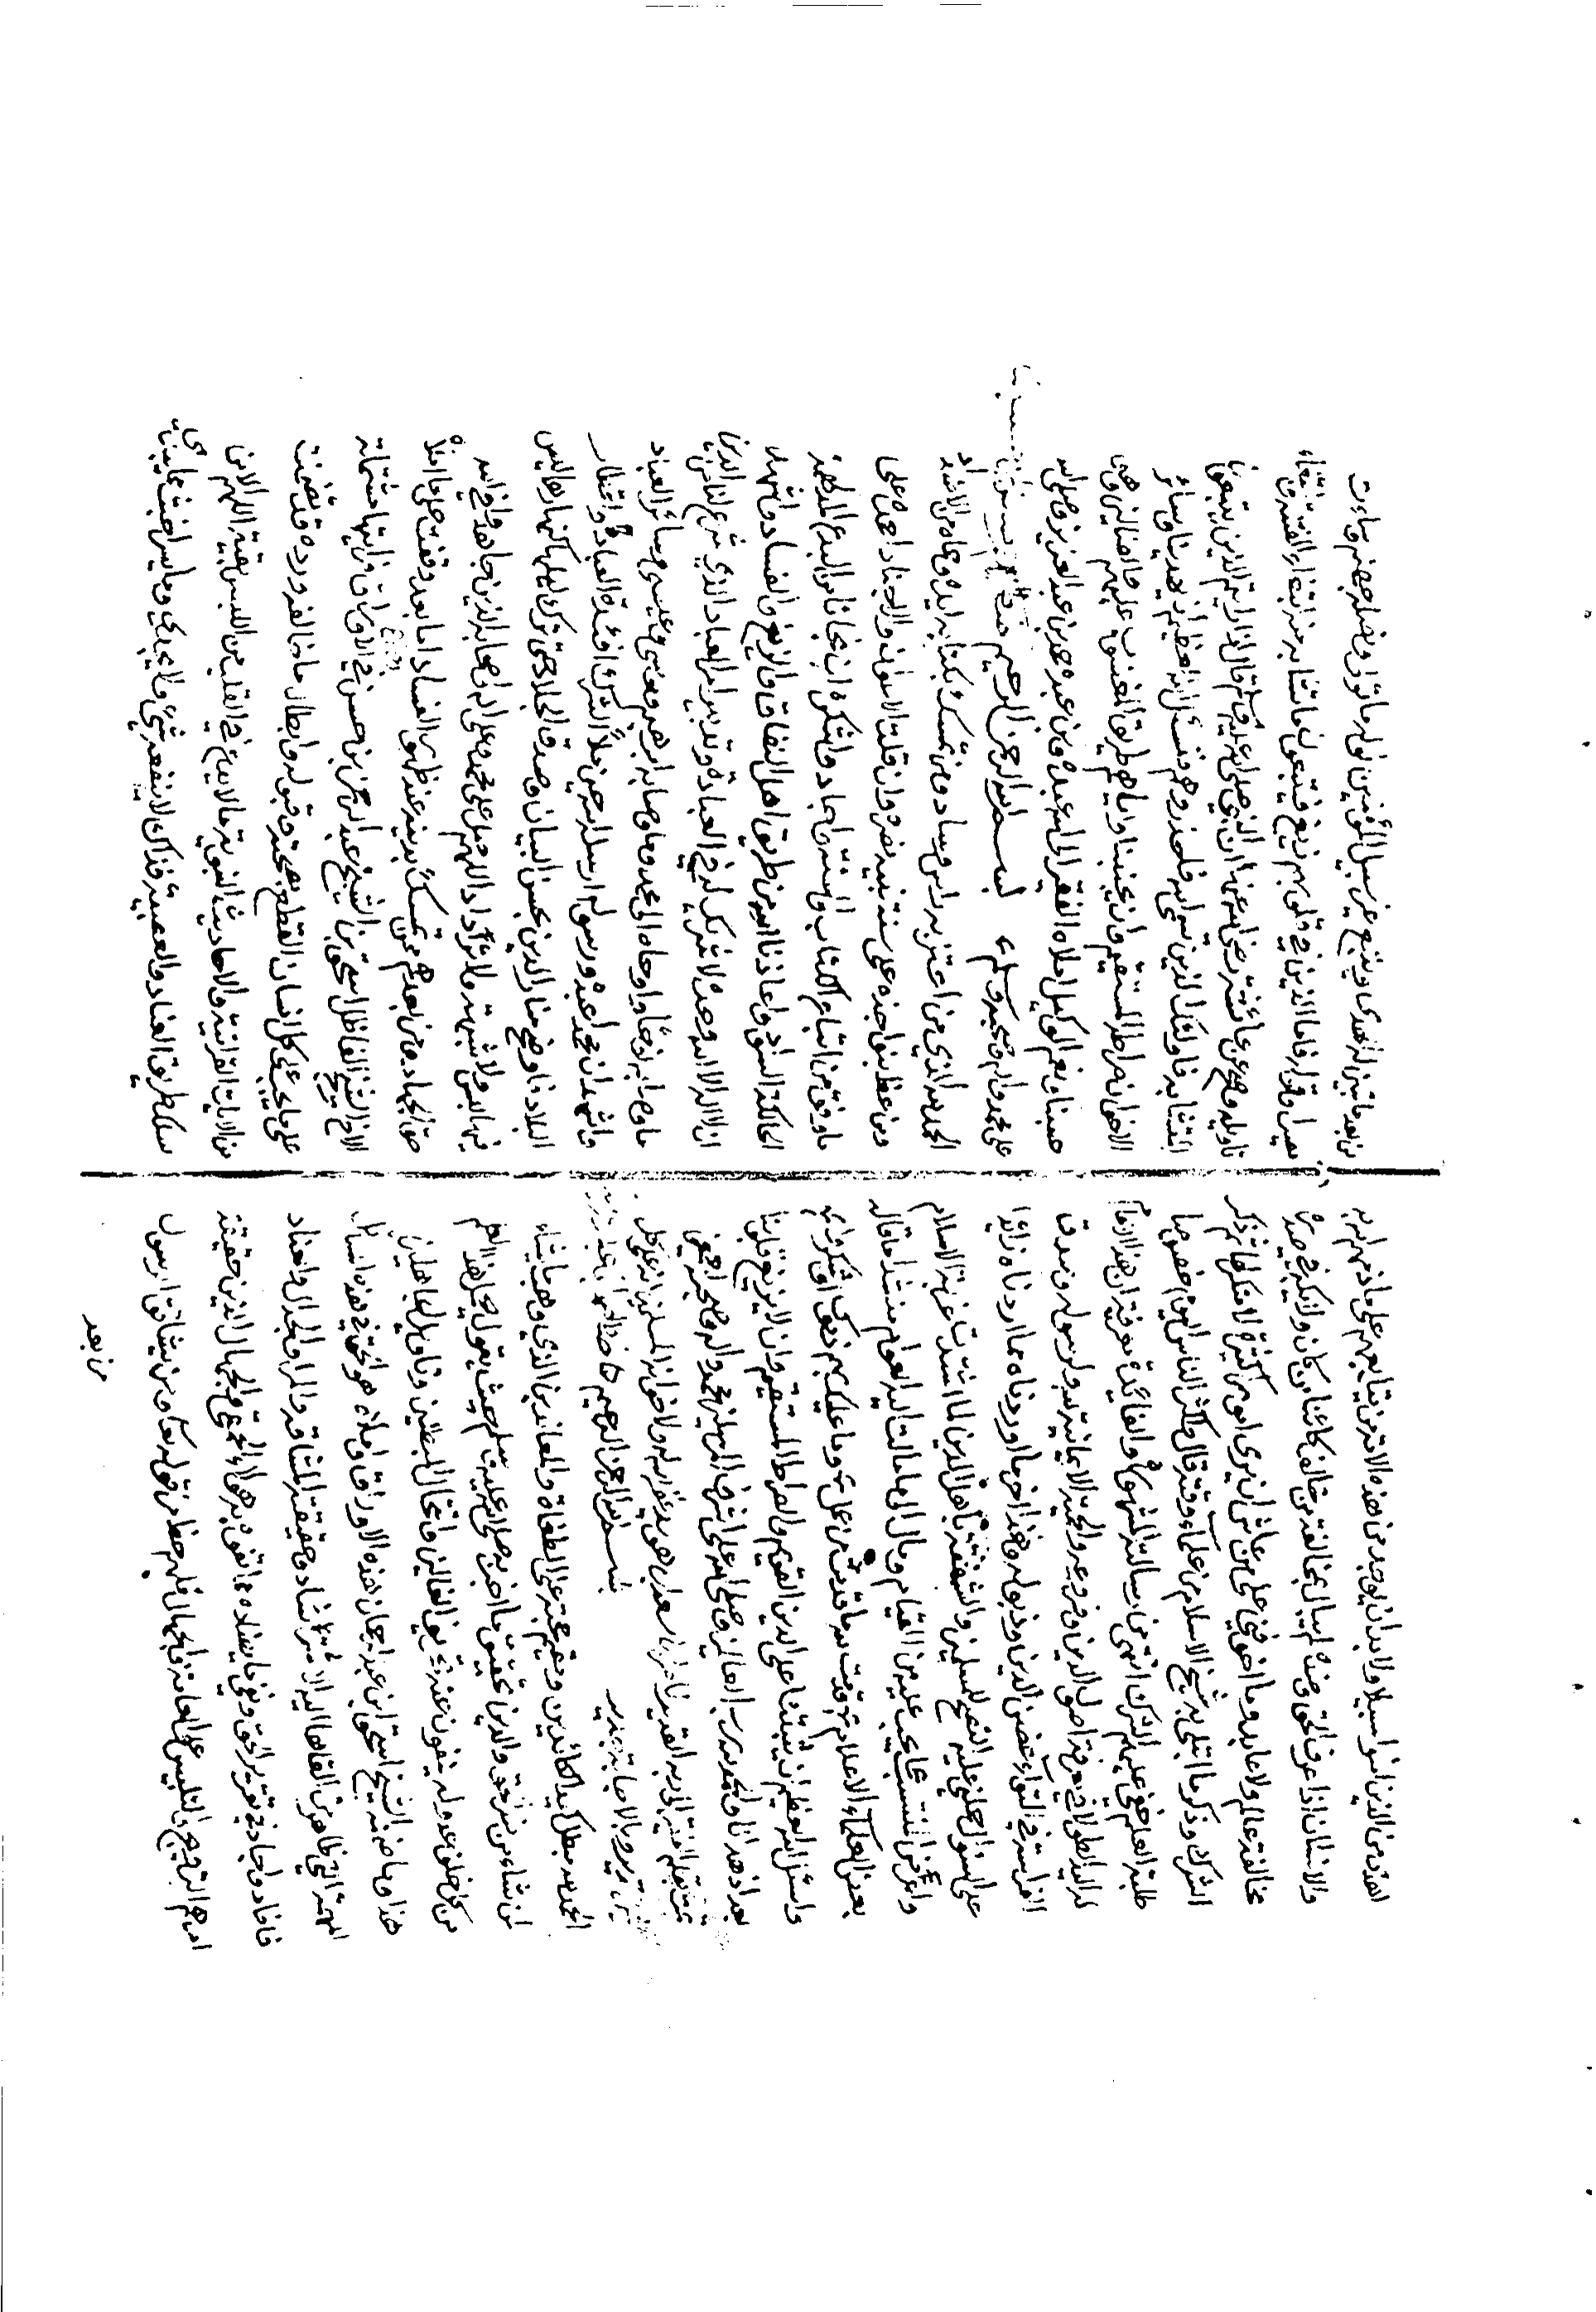 اهدى من الذين امنوا سبيلا ولا بد ان يوجد من هذه الامة من يتابعهم على ما ذمهم الله به
والانسان اذا عرف الحق وضده لم يبال بمخالفة من خالف كائنا من كان ولا يكبر في صدره
مخالفة عالم ولا عابد وما اخوفني على من عاش ان يرى امورا كثيرة لا منكر لها ثم ذكر
الشرك وذكر ما ابتلي به شيخ الاسلام من علماء وقته قال واكثر الناس اليوم خصوصا
طلبة العلم خفي عليهم الشرك انتهى من رسالته المشهورة والفائدة معرفة ان هذا الامام
له اليد الطولى في معرفة اصول الدين وفروعه والحمية الايمانية لله ولرسوله وصدق
الفراسة في التواء غصن الدين وذبوله وهذا اخر ما اوردناه مما اردناه زائدا
على السؤال حملني عليه النصح للمسلمين والشفقة باهل الدين لما اشتدت غربة الاسلام
واعرض المنتسب عما يجب عليه من القيام ومال الى ما مالت اليه العوام منشدا ما قاله
بعض العلماء الاعلام ثم قدمت لله ما قدمت من عمل وما عليك بهم ذموك او شكروك
واسئل الله العظيم ان يثبتنا على الدين القويم والصراط المستقيم وان لا يزيغ قلوبنا
بعد اذ هدانا والحمد لله رب العالمين وصلى الله على اشرف المرسلين محمد واله وصحبه اجمعين
تمت بقلم الفقير الى ربه القدير
بسم الله الرحمن الرحيم
الحمد لله مبطل كيد الكائدين ومقيم حجته على الطغاة والمعاندين الذي وهب ما يشاء
لمن شاء من نبذ حق والدين تحقيق ما اخبر به صلى الله عليه وسلم حيث يقول يحمل هذا العلم
من كل خلف عدوله ينفون عنه تحريف الغالين وانتحال المبطلين وتاويل الجاهلين
هذا وما صنفه الشيخ اسحق ابن عبد الرحمن هذه الاوراق واملاه هو الحق في هذه المسائل
المهمة التي ظاهر من القاها اليه الاسترشاد وحقيقته المشاقة والمراء والجدال والعناد
فافاد واجاد في تقرير الحق ونفى ما يضاده مما تفوه به هؤلاء الحمقى والجهال الذين حقيقة
امرهم الترويج والتلبيس على العامة والجهال فلهم حظ من قوله تعالى ومن يشاقق الرسول
من بعد
من بعد ما تبين له الهدى ويتبع غير سبيل المؤمنين نوله ما تولى ونصله جهنم وساءت
مصيرا وقوله فاما الذين في قلوبهم زيغ فيتبعون ما تشابه منه ابتغاء الفتنة وابتغاء
تاويله وصح عن عائشة رضي الله عنها ان النبي صلى الله عليه وسلم قال اذا رايتم الذين يتبعون
المتشابه فاولئك الذين سمى الله فاحذروهم فنسئل الله العظيم ان يهدينا وسائر
الاخوان صراطه المستقيم وان يجنبنا واياهم طريق المغضوب عليهم والضالين وهو
حسبنا ونعم الوكيل املاه الفقير الى الله عبده وابن عبده محمد بن عبد العزيز وصلى الله
على محمد واله وصحبه وسلم بسم الله الرحمن الرحيم
الحمد لله الذي من اعتز به راس وساد ومن تمسك بكتابه ايده وحماه من الاضداد
ومن عض بنواجذه على سنة نبيه نصره وان قلت الاعوان والاجناد احمده على
ما وفق من اتباع الكتاب والسنة واجاد واشكره ان نجانا من البدع المدلهمة
الحالكة السواد واعاذنا الله من طريق اهل النفاق والزيغ والفساد واشهد
ان لا اله الا الله وحده لا شريك له في العبادة وتدبير امر العباد الذي شرع لنا من الدين
ما وصى به نوحا واوحاه الى محمد وما وصى به ابرهيم وموسى وعيسى وسائر العباد
واشهد ان محمدا عبده ورسوله ارسله حين ملأ الشرك افئدة العباد واقطار
البلاد فاوضح منار الدين بحسن البيان وصدق الجلاد حتى ترك ليلها كنهارها ليس
فيها لبس ولا شبهة ولا ترداد اللهم صل على محمد وعلى اله واصحابه الذين جاهدوا في الله
حق الجهاد ومن بعدهم ممن تمسك بدينه عند ظهور الفساد اما بعد وقفت على ما املاه
الاخ في الله الشيخ الفاضل اسحق بن الشيخ عبد الرحمن بن حسن في الاوراق فرايتها مشتملة
على ما يجب على كل انسان القطع بصحته وقبوله وابطال ما خالفه ورده قد تضمنت
من الايات القرانية والاحاديث النبوية ما لا يدع في القلب من اللبس بقية اللهم الا من
سلك طريق العناد والعصبية فذاك لا ينفعه شيء ولا يجدي وما يسر اخبث مما يبدي